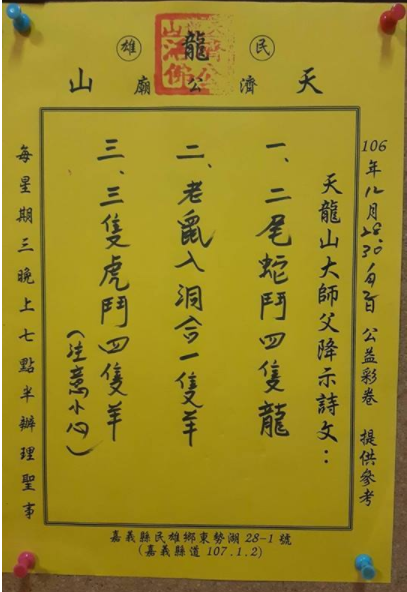 民 龍 雄
天 濟公廟 山
106年12月28.30 公益彩卷 提供參考
天龍山大師父降示詩文：
一、二尾蛇鬥四隻龍
二、老鼠入洞合一隻羊
三、三隻虎鬥四隻羊
（注意小心）
每星期三晚上七點半辦理聖事
嘉義縣民雄鄉東勢湖28-1號
(嘉義縣道107.1.2)